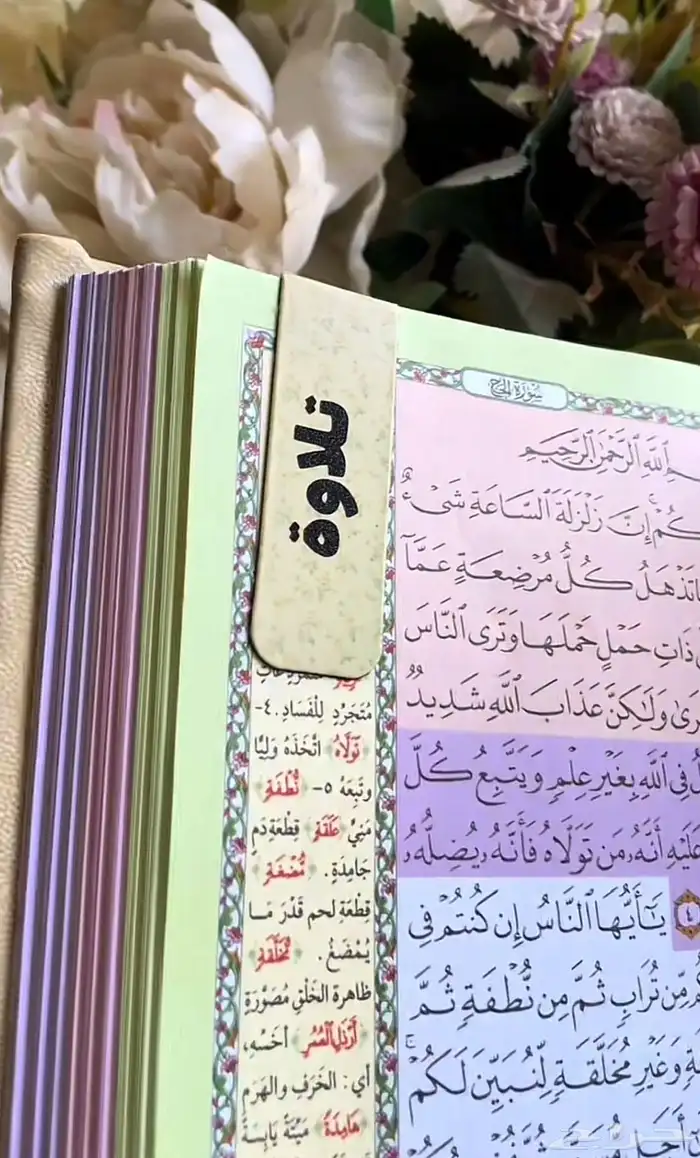 سورة الحج
تلاوة
ٱللَّهِ ٱلرَّحْمَٰنِ ٱلرَّحِيمِ
إِنَّ زَلْزَلَةَ ٱلسَّاعَةِ شَىْءٌ
كُلُّ مُرْضِعَةٍ عَمَّآ
ذَاتِ حَمْلٍ حَمْلَهَا وَتَرَى ٱلنَّاسَ
وَلَٰكِنَّ عَذَابَ ٱللَّهِ شَدِيدٌ
فِى ٱللَّهِ بِغَيْرِ عِلْمٍ وَيَتَّبِعُ كُلَّ
عَلَيْهِ أَنَّهُۥ مَن تَوَلَّاهُ فَأَنَّهُۥ يُضِلُّهُۥ
٤ يَٰٓأَيُّهَا ٱلنَّاسُ إِن كُنتُمْ فِى
مِّن تُرَابٍ ثُمَّ مِن نُّطْفَةٍ ثُمَّ
وَغَيْرِ مُخَلَّقَةٍ لِّنُبَيِّنَ لَكُمْ
مُتَجَرِّدٍ لِلْفَسَادِ. ٤-
تَوَلَّاهُ اتَّخَذَهُ وَلِيًّا
وتَبِعَهُ ٥- نُطْفَةٍ
مَنِيٍّ عَلَقَةٍ قِطْعَةِ دَمٍ
جَامِدَةٍ. مُضْغَةٍ
قِطْعَةِ لحم قَدْرَ مَا
يُمْضَغُ. مُخَلَّقَةٍ
ظاهرة الخَلْقِ مُصَوَّرَةٍ
أَرْذَلِ الْعُمُرِ أخسِّه،
أي: الخَرَفِ والهَرَمِ
هَامِدَةً مَيْتَةً يَابِسَةً